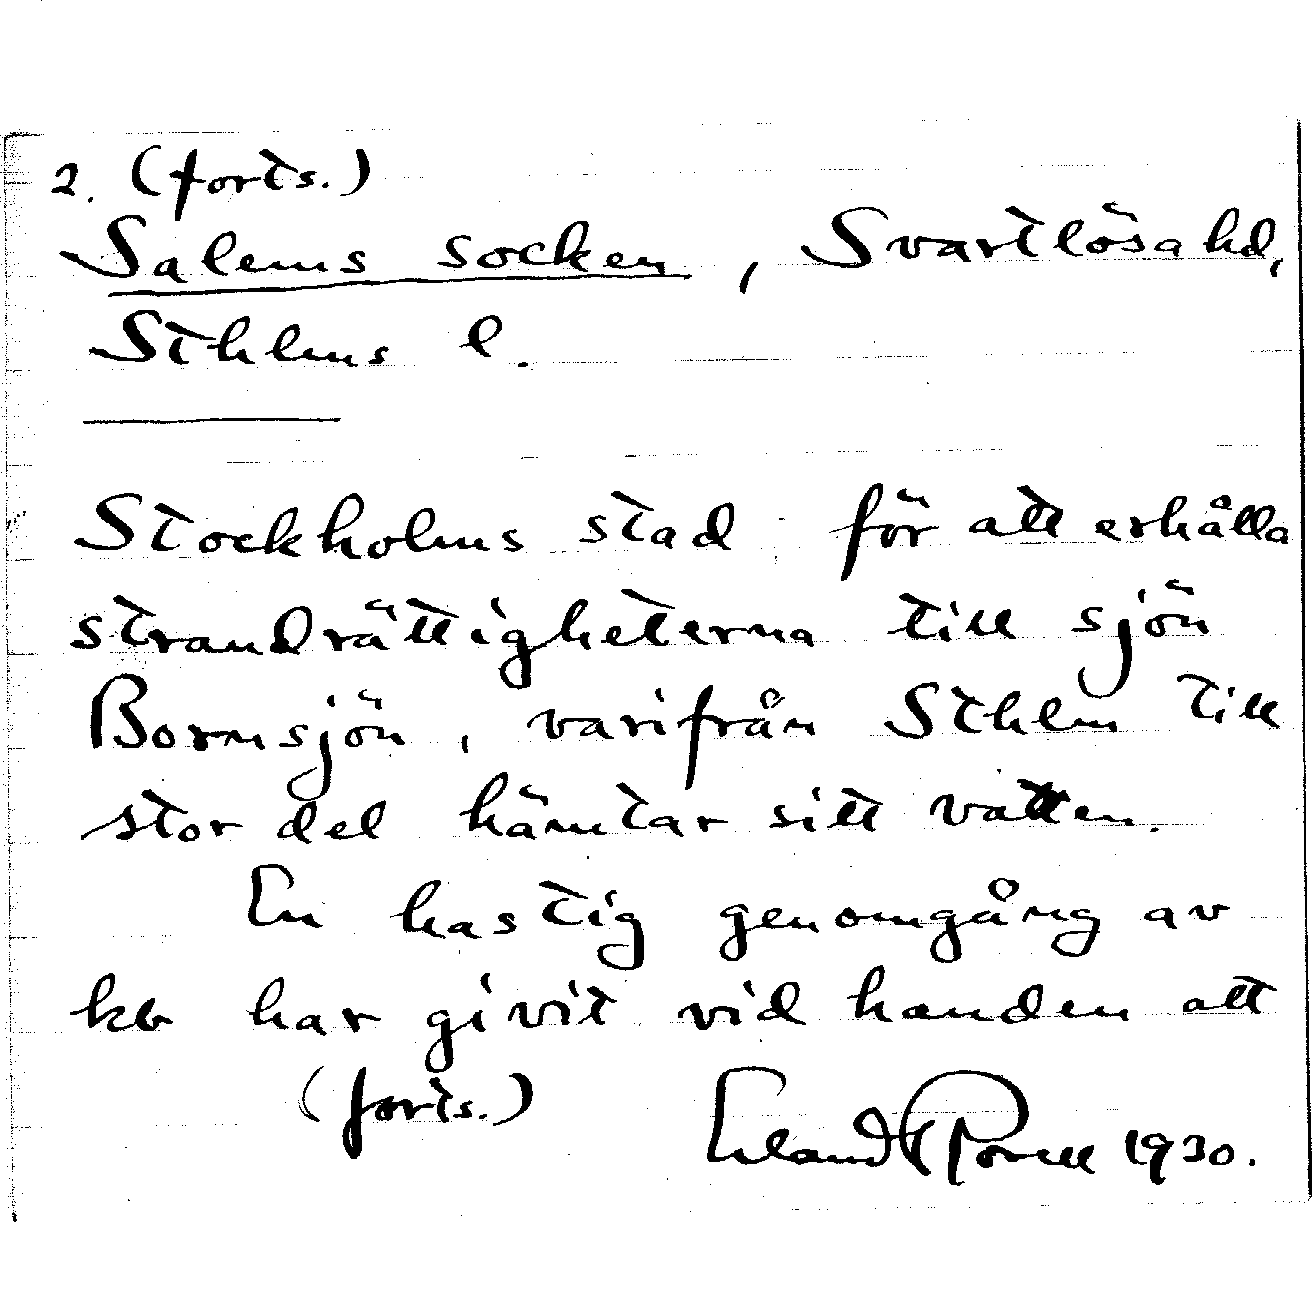 2. (forts.)
Salems socken, Svartlösa hd,
Sthlms l.
Stockholms stad för att erhålla
strandrättigheterna till sjön
Bornsjön, varifrån Sthlm till
stor del hämtar sitt vatten.
En hastig genomgång av
kb har givit vid handen att
(forts.) Erland 1930.